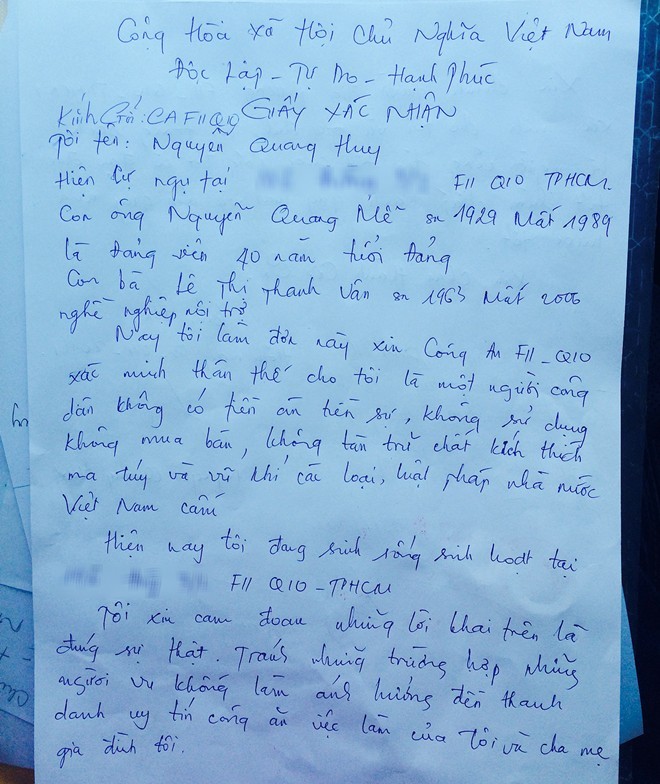 Cộng Hòa xã Hội Chủ Nghĩa Việt Nam
Độc Lập - Tự Do - Hạnh Phúc
Kính Gởi: CA F11 Q10 GIẤY XÁC NHẬN
Tôi tên: Nguyễn Quang Huy
Hiện cự ngụ tại F11 Q10 TPHCM.
Con ông Nguyễn Quang Mễ sn 1929 Mất 1989
là Đảng viên 40 năm tuổi Đảng
Con bà Lê Thị Thanh Vân sn 1963 Mất 2006
nghề nghiệp nội trợ
Nay tôi làm đơn này xin Công An F11 - Q10
xác minh thân thế cho tôi là một người công
dân không có tiền án tiền sự, không sử dụng
không mua bán, không tàn trữ chất kích thích
ma túy và vũ khí các loại, luật pháp nhà nước
Việt Nam cấm
Hiện nay tôi đang sinh sống sinh hoạt tại
F11 Q10 - TPHCM
Tôi xin cam đoan những lời khai trên là
đúng sự thật. Tránh nhưng trường hợp những
người vu không làm ảnh hưởng đến thanh
danh uy tín công ăn việc làm của Tôi và cha mẹ
gia đình tôi.